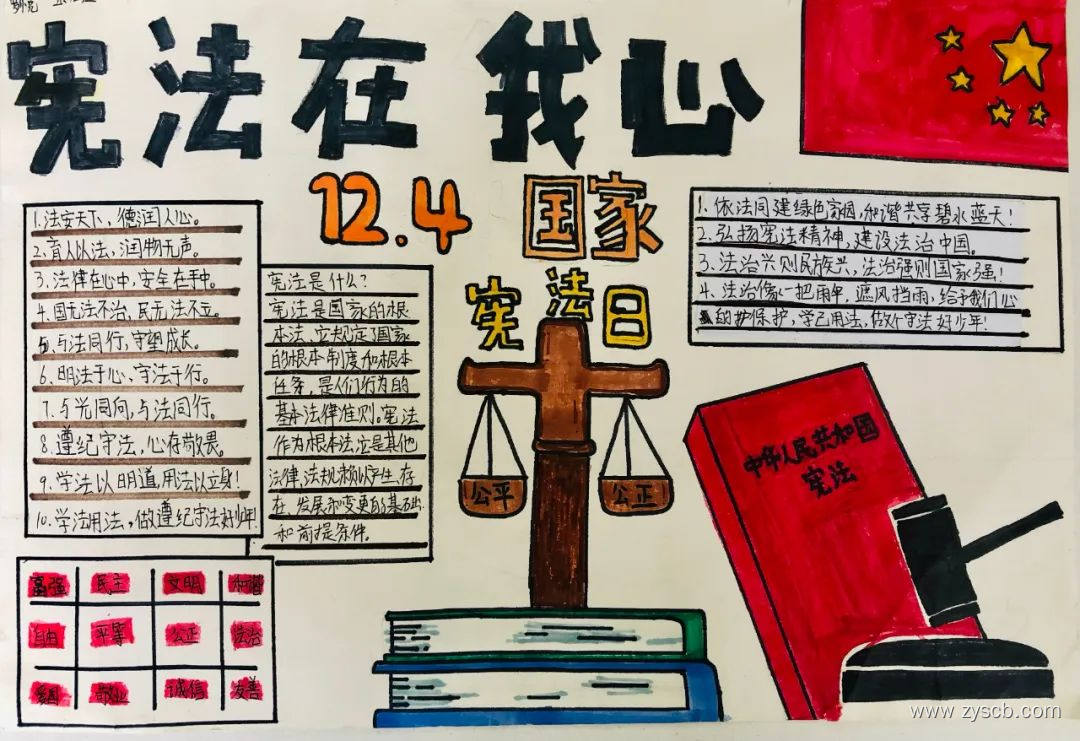 宪法在我心
12.4 国家
宪法日
1.法安天下、德润人心。
2.育人以法，润物无声。
3.法律在心中，安全在手中。
4.国无法不治，民无法不立。
5.与法同行，守望成长。
6.明法于心、守法于行。
7.与光同向，与法同行。
8.遵纪守法，心存敬畏。
9.学法以明道，用法以立身！
10.学法用法，做遵纪守法好少年！
宪法是什么？
宪法是国家的根
本法，它规定了国家
的根本制度和根本
任务，是人们行为的
基本法律准则。宪法
作为根本法它是其他
法律、法规赖以产生、存
在、发展和变更的基础
和前提条件。
1.依法同建绿色家园，和谐共享碧水蓝天！
2.弘扬宪法精神，建设法治中国。
3.法治兴则民族兴，法治强则国家强！
4.法治像一把雨伞，遮风挡雨，给予我们心
的护保护，学习用法，做个守法好少年！
公平 公正
中华人民共和國
宪法
富强 民主 文明 和谐
自由 平等 公正 法治
爱国 敬业 诚信 友善
www.zyscb.com